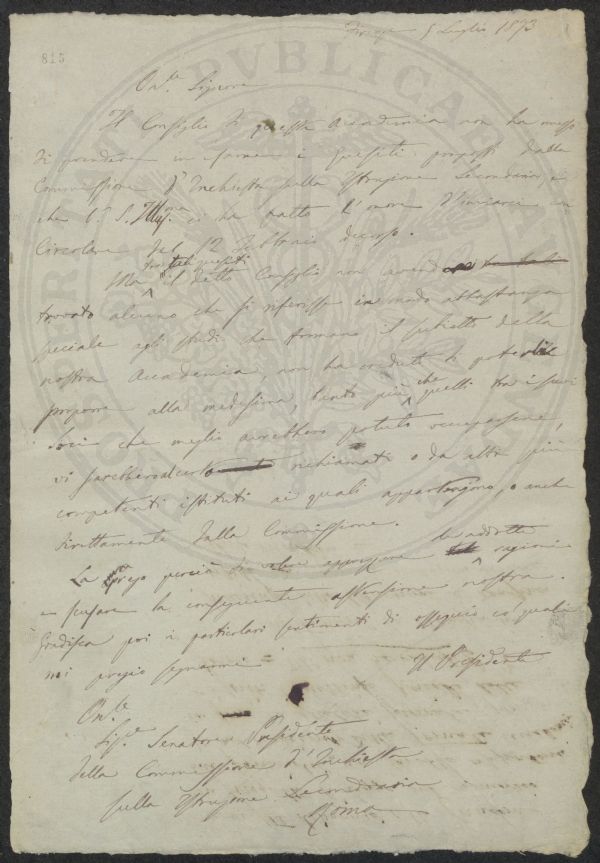 Firenze 5 Luglio 1873
815
On.le Signore
Il Consiglio di questa Accademia non ha messo
di prendere in esame i quesiti proposti dalla
Commissione d'Inchiesta sulla Istruzione Secondaria, e
che V. S. Illma ci ha fatto l'onore d'inviarci con
Circolare del 12 Febbraio decorso.
fra tali quesiti
Ma il detto Consiglio non avendo
trovato alcuno che si riferisse in modo abbastanza
speciale agli studi che formano il subietto della
nostra Accademia non ha creduto di poterli
proporre alla medesima, tanto più che quelli tra i suoi
Soci che meglio avrebbero potuto occuparsene,
vi sarebbero al certo richiamati o da altri più
competenti istituti ai quali appartengono, o anche
direttamente dalla Commissione.
La prego perciò di voler apprezzare le addotte ragioni
e scusare la conseguente astensione nostra.
Gradisca poi i particolari sentimenti di ossequio co' quali
mi pregio segnarmi
Il Presidente
On.le
Sig.r Senatore Presidente
della Commissione d'Inchiesta
sulla Istruzione Secondaria
Roma